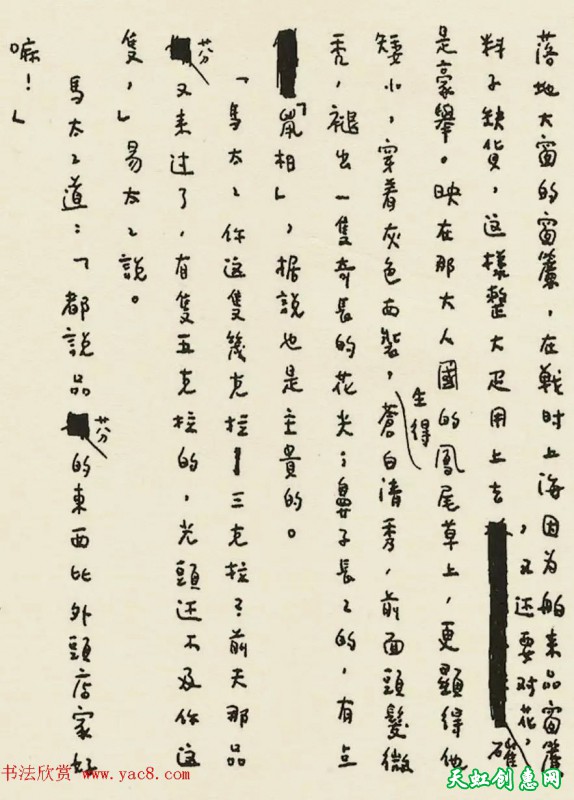 落地大窗的窗簾，在戰时上海因为舶来品窗簾
料子缺貨，这樣整大疋用上去，又还要对花，確
是豪舉。映在那大人國的鳳尾草上，更顯得他
矮小，穿着灰色西裝，生得蒼白清秀，前面頭髮微
禿，褪出一隻奇長的花尖；鼻子長〻的，有点
「鼠相」，据說也是主貴的。
「馬太〻你这隻幾克拉——三克拉？前天那品
芬又来过了，有隻五克拉的，光頭还不及你这
隻，」易太〻說。
馬太〻道：「都說品芬的東西比外頭店家好
嚜！」
书法欣赏 www.yac8.com
天虹创意网